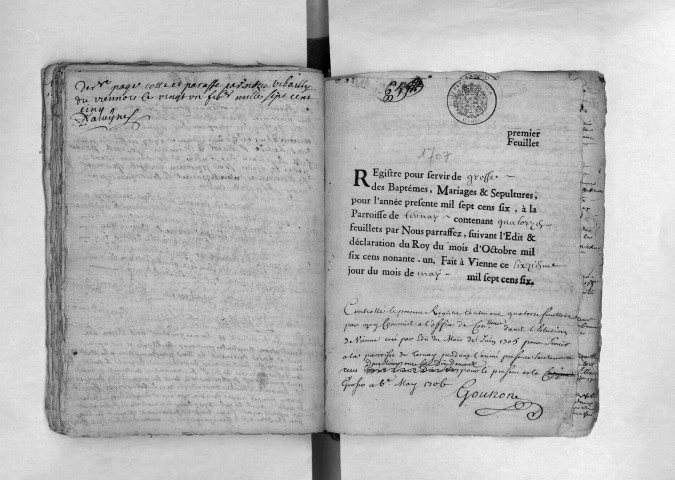 Der.re page cotté et paraffé par nous vibailly
du viennois le vingt un feb.r mille sept cent
cinq
premier
Feuillet
1707
REgistre pour servir de grosse
des Baptêmes, Mariages & Sepultures,
pour l'année presente mil sept cens six, à la
Parroisse de ternay contenant quatorze
feuillets par Nous parraffez, suivant l'Edit &
déclaration du Roy du mois d'Octobre mil
six cens nonante-un, Fait à Vienne ce sixieme
jour du mois de may mil sept cens six.
Controllé le present Registre contenant quatorze feuillets
par moy Commis a l'office de
de Vienne créé par Edit du Mois de Juin 1705 pour servir
a la parroisse de Ternay pendant l'année presente
pour le present
Grosse a 6e May 1706
Gounon